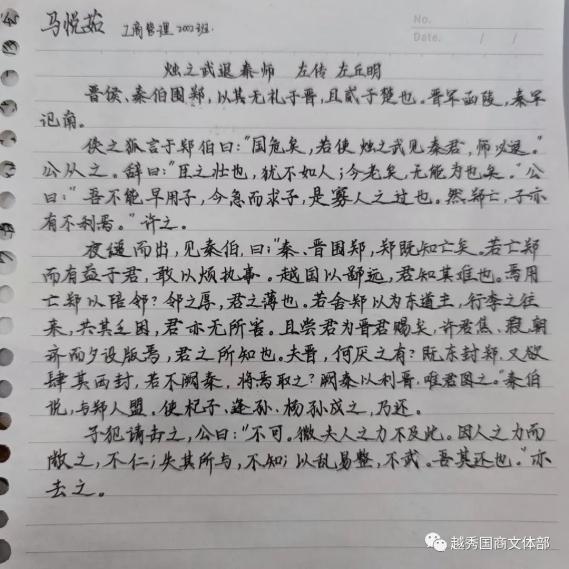 马悦茹 工商管理2002班
No.
Date. / /
烛之武退秦师 左传 左丘明
晋侯、秦伯围郑,以其无礼于晋,且贰于楚也。晋军函陵,秦军
氾南。
佚之狐言于郑伯曰:"国危矣,若使烛之武见秦君,师必退。"
公从之。辞曰:"臣之壮也,犹不如人;今老矣,无能为也矣。"公
曰:"吾不能早用子,今急而求子,是寡人之过也。然郑亡,子亦
有不利焉。"许之。
夜缒而出,见秦伯,曰:"秦、晋围郑,郑既知亡矣。若亡郑
而有益于君,敢以烦执事。越国以鄙远,君知其难也。焉用
亡郑以陪邻?邻之厚,君之薄也。若舍郑以为东道主,行李之往
来,共其乏困,君亦无所害。且尝君为晋君赐矣,许君焦、瑕,朝
济而夕设版焉,君之所知也。夫晋,何厌之有?既东封郑,又欲
肆其西封,若不阙秦,将焉取之?阙秦以利晋,唯君图之。"秦伯
说,与郑人盟。使杞子、逢孙、杨孙戍之,乃还。
子犯请击之,公曰:"不可。微夫人之力不及此。因人之力而
敝之,不仁;失其所与,不知;以乱易整,不武。吾其还也。"亦
去之。
越秀国商文体部